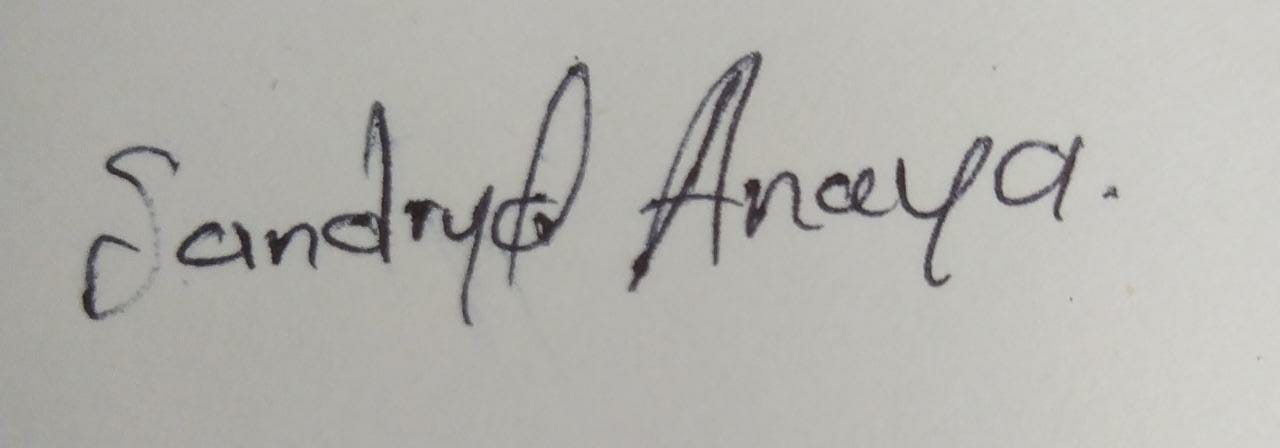 Sandryd Anaya.